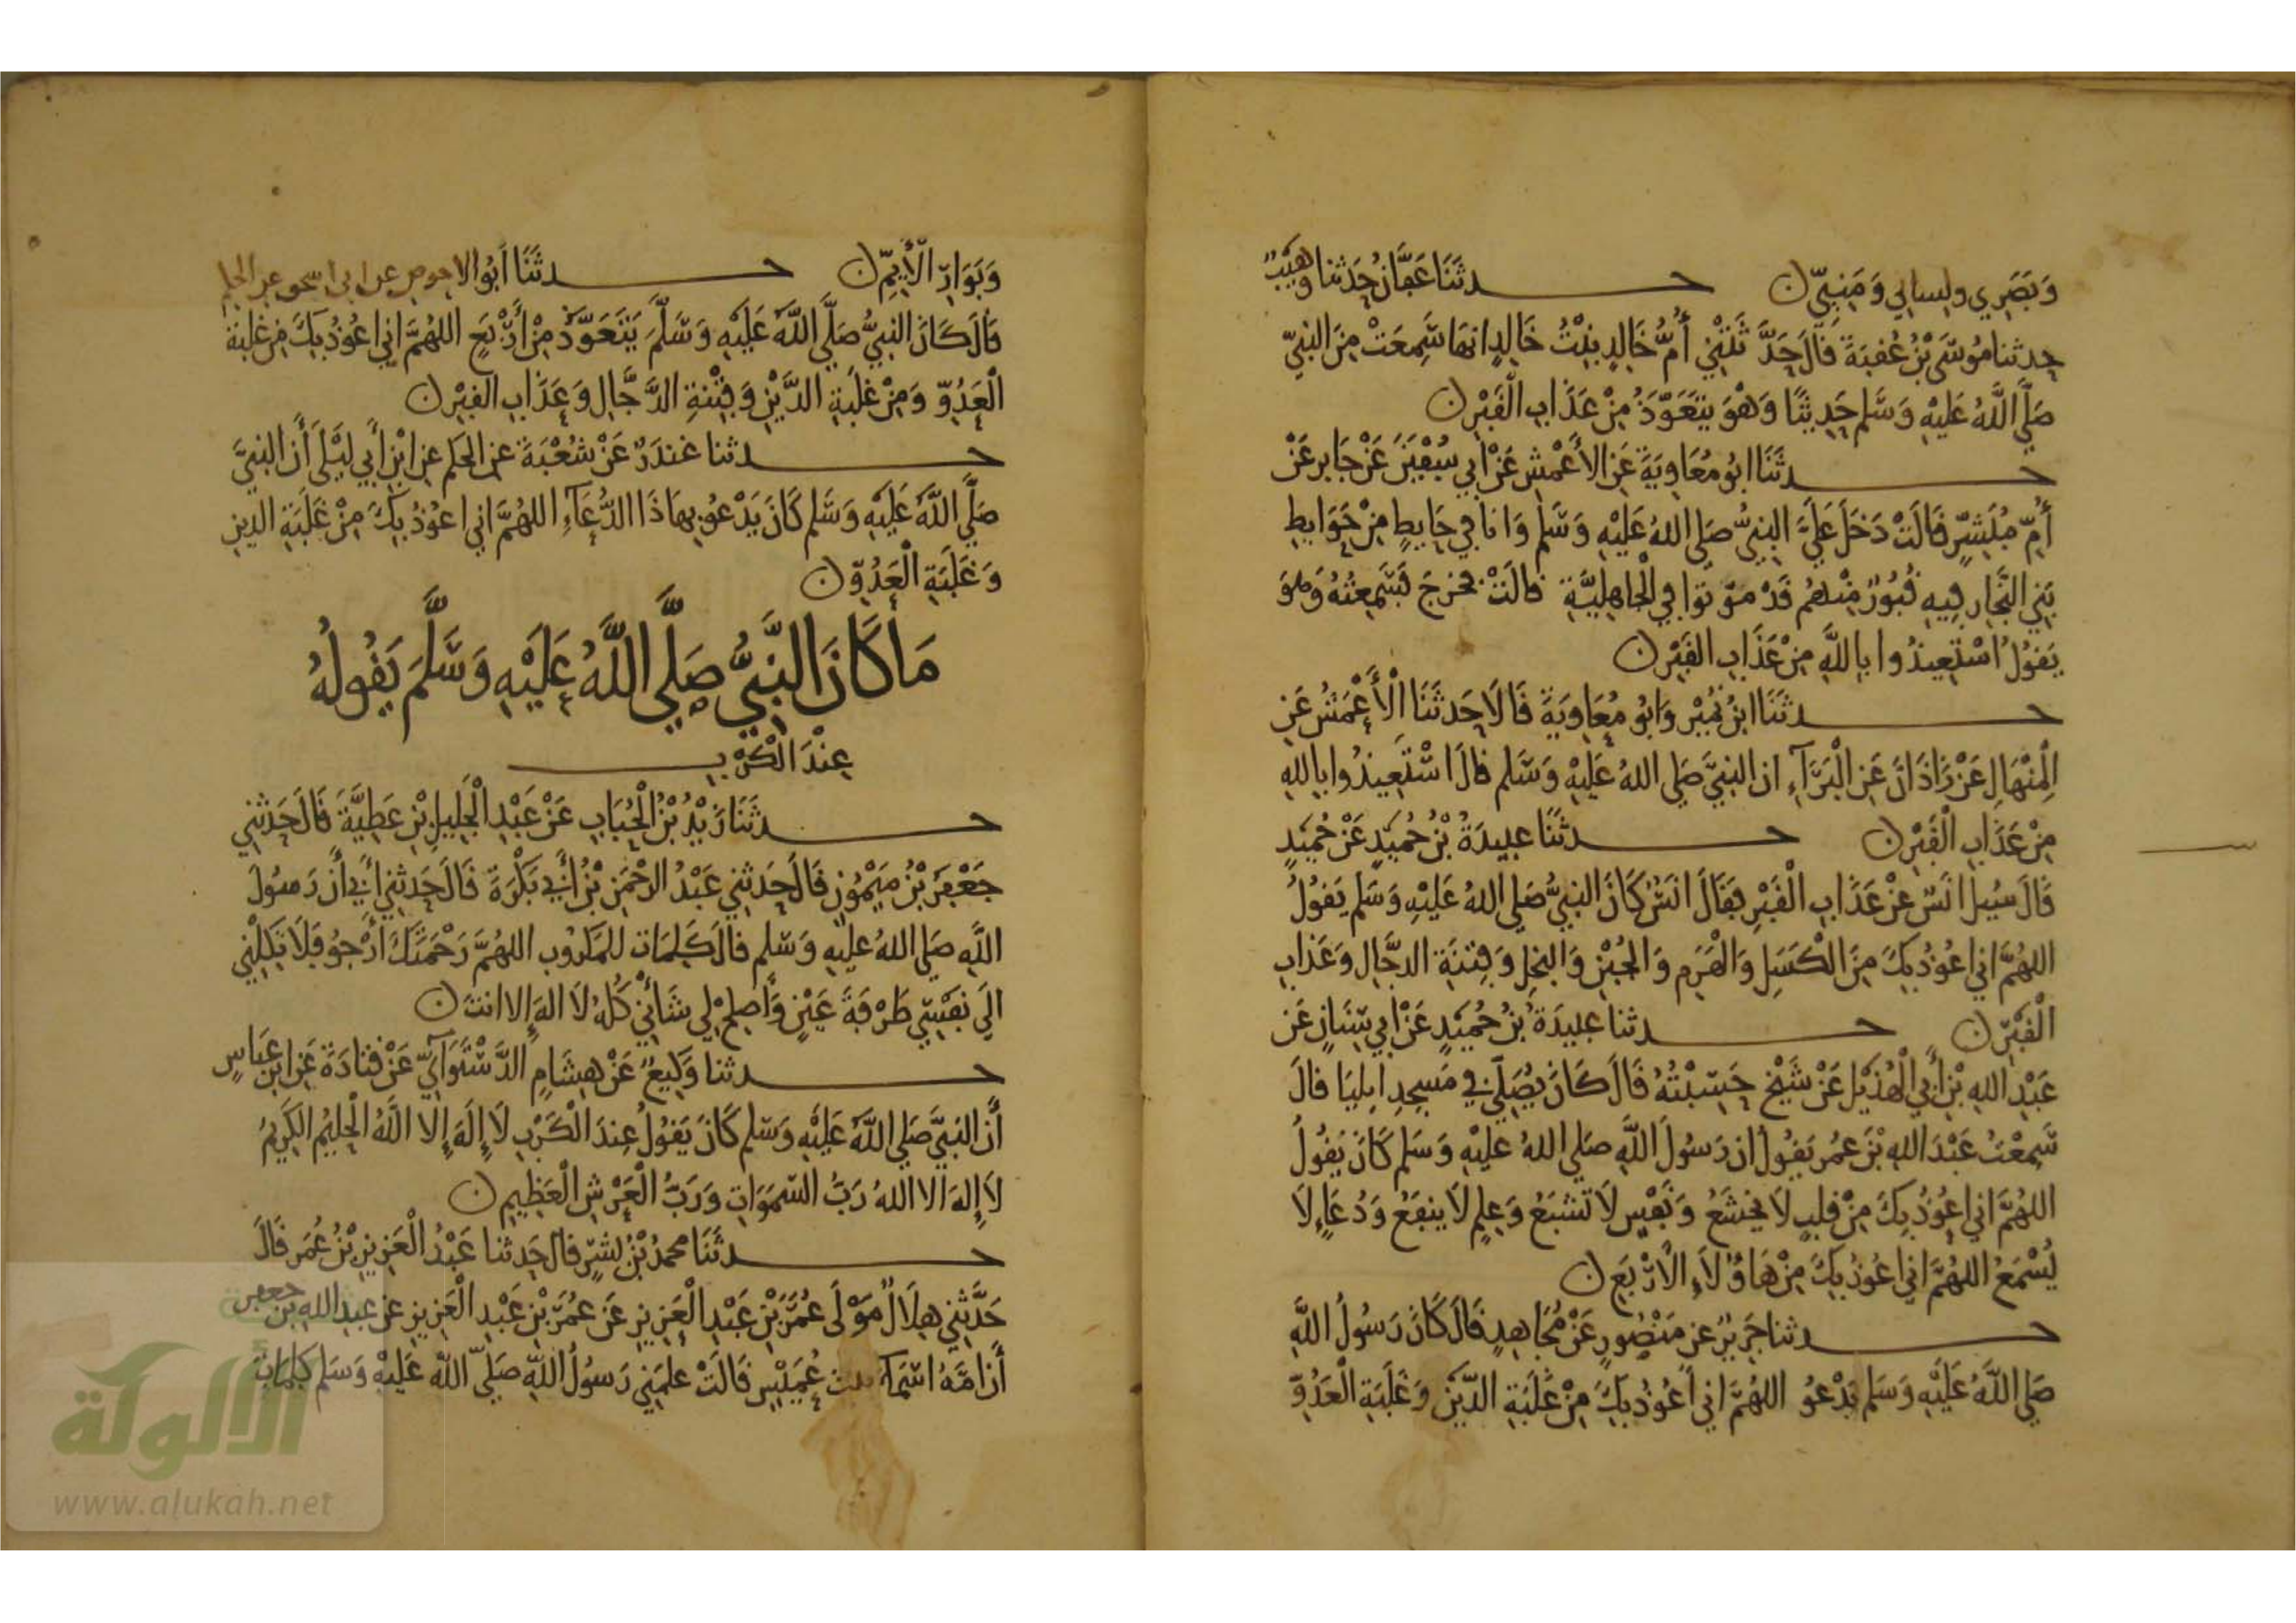 وَبَصَرِي ولِسَانِي وَمَنِيِّي ن حدثَنَا عَفَّانُ حَدثنا وُهَيْبٌ
حدثنا مُوسَى بْنُ عُقْبَةَ قَالَ حَدَّثَتْنِي أُمُّ خَالِدٍ بِنْتُ خَالِدٍ انهَا سَمِعَتْ مِنَ النبِيِّ
صَلَّى اللَّهُ عَلَيْهِ وَسَّلم حَدِيثًا وَهْوَ يَتَعَوَّذُ مِنْ عَذَابِ الْقَبْرِ ن
حدثَنَا ابُو مُعَاوِيَةَ عَنِ الأَعْمَشِ عَنْ ابِي سُفْيَنَ عَنْ جَابر عَنْ
أُمِّ مُبَشِّرٍ قَالَتْ دَخَلَ عَلَيَّ النبِيُّ صَلى اللهُ عَلَيْهِ وَسَّلم وَانَا فِي حَايِطٍ مِنْ حَوَايِطِ
بَنِي النَّجَّارِ فِيهِ قُبُورٌ مِنْهُم قَدْ مَوَّتوا فِي الْجَاهِلِيَّةِ قالَتْ فخرَجَ فَسَمِعْتُهُ وَهوَ
يَقولُ اسْتَعِيذُوا باِللَّهِ مِنْ عَذَابِ القَبْرِ ن
حدثَنَا ابْنُ نُمَيْرٍ وَابُو مُعَاوِيَةَ قَالَا حَدثَنَا الْأَعْمَشُ عَنِ
الْمِنْهَالِ عَنْ زَاذَانَ عَنِ الْبَرَآءِ ان النبِيَّ صَلى اللهُ عَلَيْهِ وَسَّلم قالَ اسْتَعِيذُوا باِللهِ
مِنْ عَذَابِ الْقَبْرِ ن حدثَنَا عبِيدَةُ بْنُ حُمَيْدٍ عَنْ حُمَيْدٍ
قَالَ سُيلَ انَسٌ عَنْ عَذَابِ الْقَبْرِ فَقَالَ انَسٌ كَانَ النبِيُّ صَلى اللهُ عَلَيْهِ وَسَلم يَقُولُ
اللهُمَّ انِي اعُوْذُ بِكَ مِنَ الْكَسَلِ وَالْهَرَمِ وَالْجُبْنِ وَالبخلِ وَفِتنَةِ الدجَّالِ وَعَذابِ
الْقَبْرِ ن حدثنا عبِيدَةُ بْنُ حُمَيْدٍ عَنْ ابِي سِنَانٍ عَن
عَبْدِ اللهِ بْنِ أَبِي الْهُذَيْلِ عَنْ شَيْخٍ حَسِبْتُهُ قَالَ كَانَ يُصَلِّي فِي مَسجِدِ ايِليَا قالَ
سَمِعْتُ عَبْدَ اللهِ بْنَ عُمَر يَقُولُ ان رَسُولَ اللَّهِ صَلى اللهُ عَلَيْهِ وَسَلم كَانَ يَقُولُ
اللهُمَّ انِي اعُوْذُ بِكَ مِنْ قلبٍ لَا يخْشَعُ وَنَفْسٍ لَا تَشبَعُ وَعِلمٍ لَا ينفَعُ وَدُعَاءٍ لَا
يُسْمَعُ اللهُمَّ انِي اعُوذُ بِكَ مِنْ هَاؤُلَاءِ الْارْبَعِ ن
حدثنا جَرِيرٌ عن مَنْصُورٍ عَنْ مُجَاهِدٍ قَالَ كَانَ رَسُولُ اللَّهِ
صَلى اللَّهُ عَلَيْهِ وَسَلم يَدْعُو اللهُمَّ اني أعُوْذُ بِكَ مِنْ غَلَبَةِ الدَّيْنِ وَغَلَبَةِ الْعَدُوِّ
وَبَوَارِ الْأَيِّمِ ن حدثَنَا أبُو الاحوص عن ابى اسحق عن
قَالَ كَانَ النبِيُّ صَلَّى اللَّهُ عَلَيْهِ وَسَلَّمَ يَتَعَوَّذُ مِنْ أَرْبَعٍ اللهُمَّ اني اعُوْذُ بِكَ مِن غلبَة
الْعَدُوِّ وَمِنْ غلَبَةِ الدَّيْنِ وَفِتْنَةِ الدَّجَّالِ وَعَذَابِ القَبْرِ ن
حدثنا غندَرٌ عَنْ شُعْبَةَ عن الحَكم عن ابْنِ أَبِي لَيْلَى أَن النبِيَّ
صَلَّى اللَّهُ عَلَيْهِ وَسَّلم كَانَ يَدْعُو بِهَاذَا الدُّعَآءِ اللهُمَّ اني اعُوْذُ بِكَ مِنْ غَلَبَةِ الدينِ
وَغَلَبَةِ الْعَدُوِّ ن
مَا كَانَ النَّبِيُّ صَلَّى اللَّهُ عَلَيْهِ وَسَّلَّمَ يَقُولُهُ
عِنْدَ الْكَرْبِ
حدثَنَا زَيْدُ بْنُ الْحُبَابِ عَنْ عَبْدِ الْجَلِيلِ بْنِ عَطِيَّةَ قَالَ حَدثنِي
جَعْفَرُ بْنُ مَيْمُونٍ قَالَ حَدثني عَبْدُ الرحْمَنِ بْنُ أَبِي بَكْرَةَ قَالَ حَدثنِي أَبِي أَن رَسُولَ
اللَّهِ صَلى اللهُ عَليْهِ وَسّلم قالَ كَلِمَات للمَكرُوبِ اللهُمَّ رَحْمَتَكَ أَرْجُو فَلَا تَكِلْنِي
الَى نَفْسِي طَرْفَةَ عَيْنٍ وَأَصلِح لِي شَأنِي كُلهُ لَا الهَ إِلا انتَ ن
حدثنا وَكِيعٌ عَنْ هِشَامٍ الدَّسْتَوَآئِيِّ عَنْ قتَادَةَ عَنِ ابْن عَبَّاسٍ
أَن النبِيَّ صَلى اللَّهُ عَلَيْهِ وَسّلم كَانَ يَقوْلُ عِندَ الْكَرْبِ لَا إِلَهَ إِلا اللَّهُ الْحَلِيْمُ الكَرِيْمُ
لَا إِلهَ الا اللهُ رَبُّ السّمَوَاتِ وَرَبُّ الْعَرْشِ الْعَظِيمِ ن
حدثَنَا محمدُ بْنُ بِشرٍ قال حَدثنا عَبْدُ الْعَزِيزِ بْنُ عُمَر قَالَ
حَدَّثَنِي هِلَالٌ مَوْلَى عُمَرَ بْنِ عَبْدِ الْعَزِيزِ عَن عُمَرَ بْنِ عَبْدِ الْعَزِيزِ عن عبد اللهِ بن جعفر
أَن امَّهُ اسْمَاء بنت عُمَيْسٍ قَالَتْ علمَنِي رَسُولُ اللهِ صَلى اللَّهُ عَلَيْهِ وَسَلم كلِمَات
الألوكة
www.alukah.net